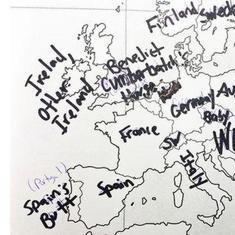 Finland
Sweden
Ireland
Other
Ireland
Benedict
Cumberbatch's
House
Germany
Baby
France
SW
Italy
(Portugal)
Spain's
Butt
Spain